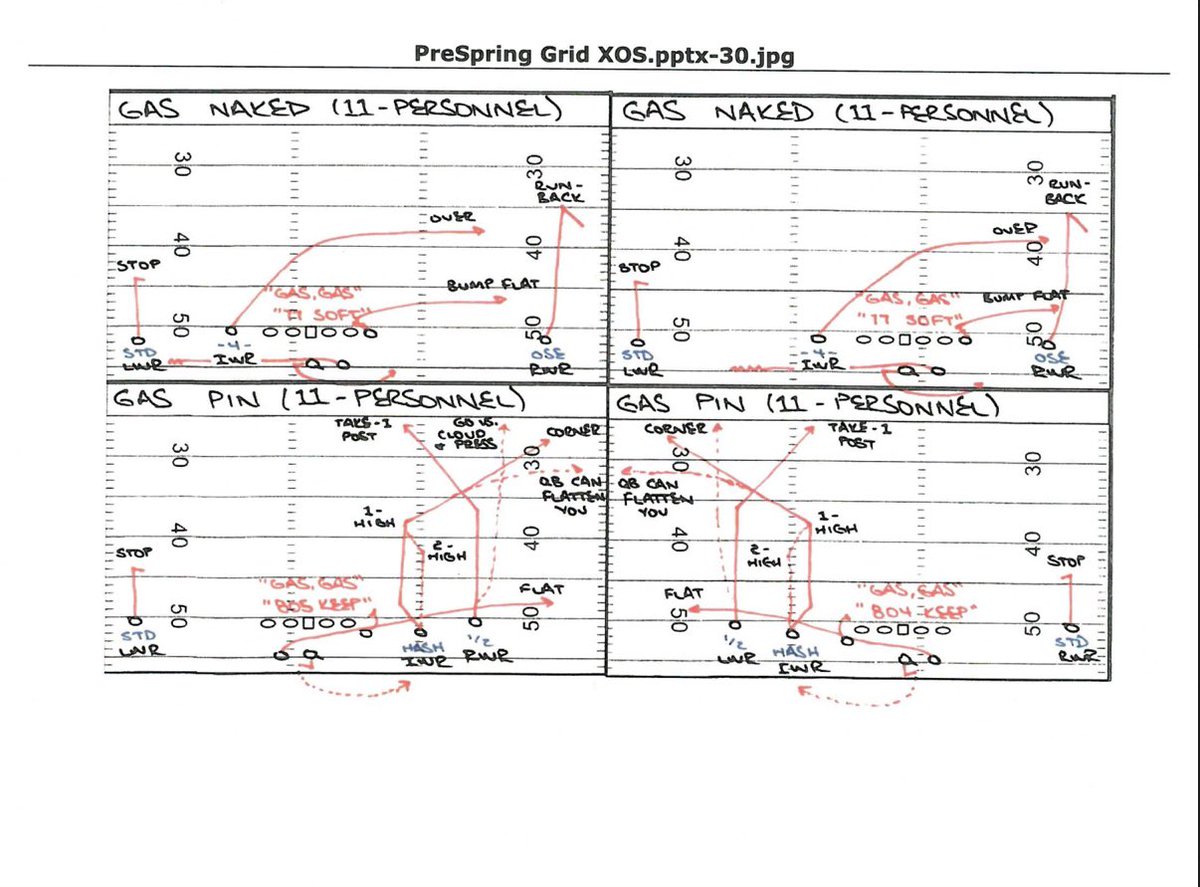 PreSpring Grid XOS.pptx-30.jpg
GAS NAKED (11-PERSONNEL)
30
30
RUN-
BACK
OVER
40
40
STOP
BUMP FLAT
"GAS, GAS"
"77 SOFT"
50
50
STD
LWR
-4-
IWR
OSE
RWR
GAS NAKED (11-PERSONNEL)
30
30
RUN-
BACK
OVER
40
40
STOP
BUMP FLAT
"GAS, GAS"
"77 SOFT"
50
50
STD
LWR
-4-
IWR
OSE
RWR
GAS PIN (11-PERSONNEL)
TAKE-1
POST
GO VS.
CLOUD
& PRESS
CORNER
30
30
QB CAN
FLATTEN
YOU
1-
HIGH
2-
HIGH
40
40
STOP
"GAS, GAS"
"805 KEEP"
FLAT
50
50
STD
LWR
HASH
IWR
1/2
RWR
GAS PIN (11-PERSONNEL)
CORNER
TAKE-1
POST
30
30
QB CAN
FLATTEN
YOU
1-
HIGH
2-
HIGH
40
40
STOP
FLAT
"GAS, GAS"
"804 KEEP"
50
50
1/2
LWR
HASH
IWR
STD
RWR